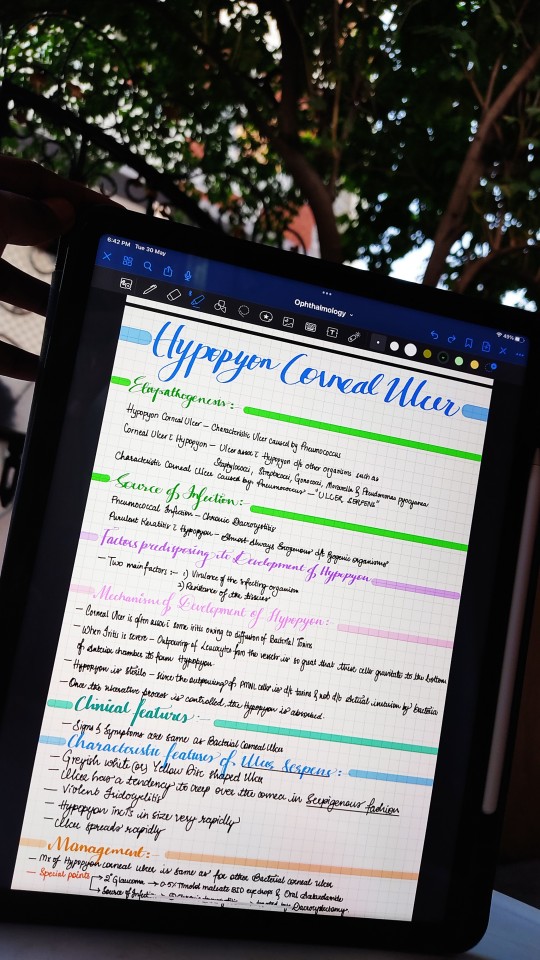 6:42 PM Tue 30 May
49%
Ophthalmology
Hypopyon Corneal Ulcer
Etiopathogenesis:-
Hypopyon Corneal Ulcer – Characteristic Ulcer caused by Pneumococcus
Corneal Ulcer c̄ Hypopyon – Ulcer assoc c̄ Hypopyon d/t other organisms such as
Staphylococci, Streptococci, Gonococci, Moraxella & Pseudomonas pyocyanea
Characteristic Corneal Ulcer caused by Pneumococcus – "ULCER SERPENS"
Source of Infection:-
Pneumococcal Infection – Chronic Dacryocystitis
Purulent Keratitis c̄ Hypopyon – almost always Exogenous d/t Pyogenic organisms
Factors predisposing to Development of Hypopyon
– Two main factors :- 1) Virulence of the infecting organism
2) Resistance of the tissues
Mechanism of Development of Hypopyon:-
– Corneal Ulcer is often assoc c̄ some iritis owing to diffusion of Bacterial Toxins
– When Iritis is severe – Outpouring of Leucocytes from the vessels is so great that these cells gravitate to the bottom
of anterior chamber to form Hypopyon
– Hypopyon is sterile – since the outpouring of PMNL cells is d/t toxins & not d/t actual invasion by bacteria
– Once the ulcerative process is controlled, the Hypopyon is absorbed.
Clinical features :-
– Signs & Symptoms are same as Bacterial Corneal Ulcer
Characteristic features of Ulcus Serpens:-
– Greyish white (or) Yellow Disc shaped Ulcer
– Ulcer has a tendency to creep over the cornea in Serpigenous fashion
– Violent Iridocyclitis
– Hypopyon incrs in size very rapidly
– Ulcer spreads rapidly
Management:-
– Mx of Hypopyon corneal ulcer is same as for other Bacterial corneal ulcer
– Special points → 2° Glaucoma → 0.5% Timolol maleate BID eye drops & Oral Acetazolamide
→ Source of Infect Dacryocystectomy